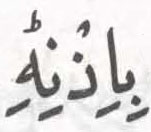 بِاِذْنِهِؕ